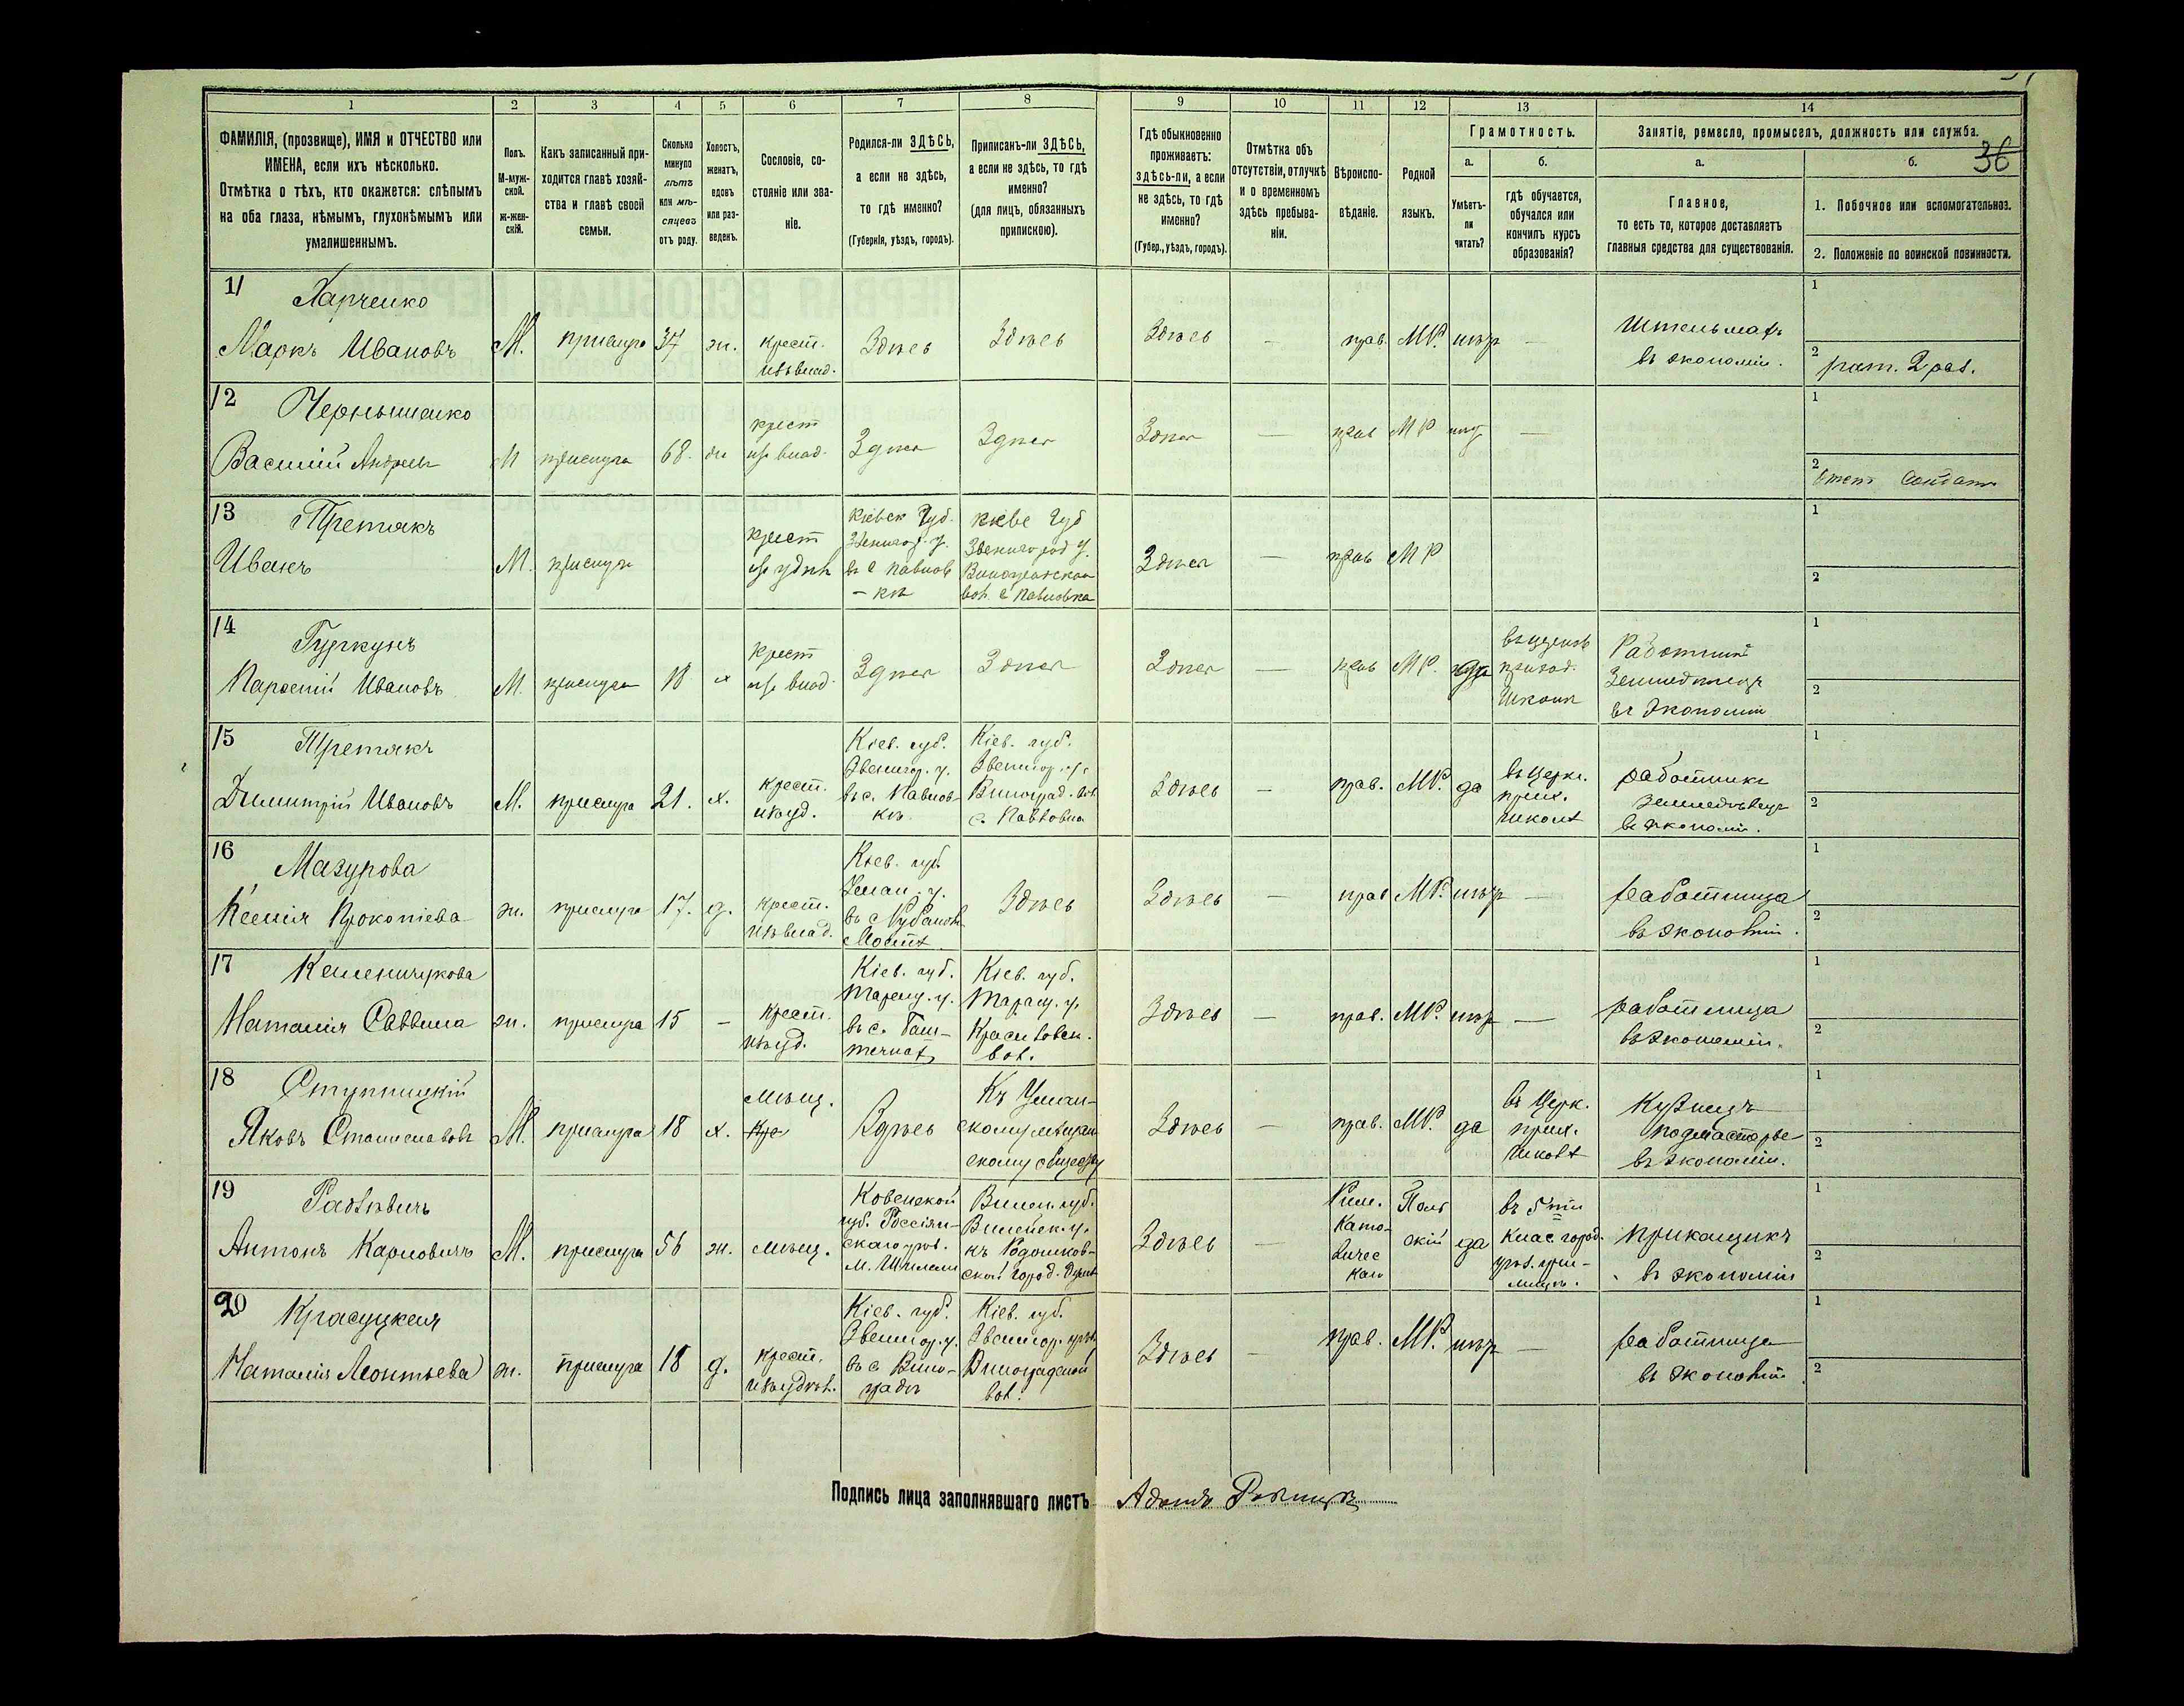 36
1 2 3 4 5 6 7 8 9 10 11 12 13 14
ФАМИЛІЯ, (прозвище), ИМЯ и ОТЧЕСТВО или
ИМЕНА, если ихъ нѣсколько.
Отмѣтка о тѣхъ, кто окажется: слѣпымъ
на оба глаза, нѣмымъ, глухонѣмымъ или
умалишеннымъ.
Полъ.
М-муж-
ской.
ж-жен-
скій.
Какъ записанный при-
ходится главѣ хозяй-
ства и главѣ своей
семьи.
Сколько
минуло
лѣтъ
или мѣ-
сяцевъ
отъ роду.
Холостъ,
женатъ,
вдовъ
или раз-
веденъ.
Сословіе, со-
стояніе или зва-
ніе.
Родился-ли ЗДѢСЬ,
а если не здѣсь,
то гдѣ именно?
(Губернія, уѣздъ, городъ).
Приписанъ-ли ЗДѢСЬ,
а если не здѣсь, то гдѣ
именно?
(для лицъ, обязанныхъ
припискою).
Гдѣ обыкновенно
проживаетъ:
здѣсь-ли, а если
не здѣсь, то гдѣ
именно?
(Губер., уѣздъ, городъ).
Отмѣтка объ
отсутствіи, отлучкѣ
и о временномъ
здѣсь пребыва-
ніи.
Вѣроиспо-
вѣданіе.
Родной
языкъ.
Грамотность.
а.
Умѣетъ-
ли
читать?
б.
гдѣ обучается,
обучался или
кончилъ курсъ
образованія?
Занятіе, ремесло, промыселъ, должность или служба.
а.
Главное,
то есть то, которое доставляетъ
главныя средства для существованія.
б.
1. Побочное или вспомогательное.
2. Положеніе по воинской повинности.
11
Харченко
Маркъ Ивановъ
М.
прислуга
37
ж.
крест.
изъ влад.
Здѣсь
Здѣсь
Здѣсь
—
прав.
МР.
нѣтъ
—
въ экономіи.
1
2
рат. 2 раз.
12
Чернышенко
Василій Андреевъ
М
прислуга
68.
ж
крест
изъ влад.
Здѣсь
Здѣсь
Здѣсь
—
прав
МР
нѣт
—
1
2
13
Третякъ
Иванъ
М.
прислуга
крест
Кіевск Губ.
Звенигор. у.
въ с Павлов
-кѣ
Кіевс Губ
Звенигород у.
Виноградской
вол. с Павловка
Здѣсь
—
прав
МР
1
2
14
Ивановъ
М.
прислуга
18
х
крест
изъ влад.
Здѣсь
Здѣсь
Здѣсь
—
прав
МР.
да
въ церков
приход.
школѣ
Работникъ
Земледѣлецъ
въ Экономіи
1
2
15
Третякъ
Димитрій Ивановъ
М.
прислуга
21.
х.
крест.
изъ уд.
Кіев. губ.
Звенигор. у.
въ с. Павлов-
кѣ.
Кіев. губ.
Звенигор. у.
Виноград. вол.
с. Павловка
Здѣсь
—
прав.
МР.
да
въ церк.
прих.
школѣ
работникъ
земледѣлецъ
въ экономіи.
1
2
16
Мазурова
Ксенія Прокопіева
ж.
прислуга
17.
д.
крест.
изъ влад.
Кіев. губ.
Уман. у.
Здѣсь
Здѣсь
—
прав
МР.
нѣтъ
—
работница
въ экономіи.
1
2
17
Наталія Саввина
ж.
прислуга
15
—
крест.
изъ уд.
Кіев. губ.
Таращ. у.
Кіев. губ.
Таращ. у.
вол.
Здѣсь
—
прав.
МР.
нѣтъ
—
работница
въ экономіи.
1
2
18
Ступницкій
Яковъ Станиславовъ
М.
прислуга
18
х.
мѣщ.
Кре
Здѣсь
Къ Уман-
скому мѣщан
скому обществу
Здѣсь
—
прав.
МР.
да
въ Церк.
прих.
школѣ
Кузнецъ
подмастерье
въ экономіи.
1
2
19
Антонъ Карловичъ
М.
прислуга
56
ж.
мѣщ.
Ковенской
губ. Россіян-
скаго уѣз.
Вилен. губ.
Вилейск. у.
къ Родошков-
Здѣсь
—
Рим.
Като-
личес
каго
Поль
скій
да
въ 5ти
клас. город.
уѣз. учи-
лищѣ.
прикащикъ
въ экономіи
1
2
20
Красуцкая
Наталія Леонтьева
ж.
прислуга
18
д.
крест.
Кіев. губ.
Звенигор. у.
въ с Вино-
градѣ
Кіев. губ.
Звенигор. уѣз.
Виноградской
вол.
Здѣсь
—
прав.
МР.
нѣтъ
—
работница
въ экономіи
1
2
Подпись лица заполнявшаго листъ